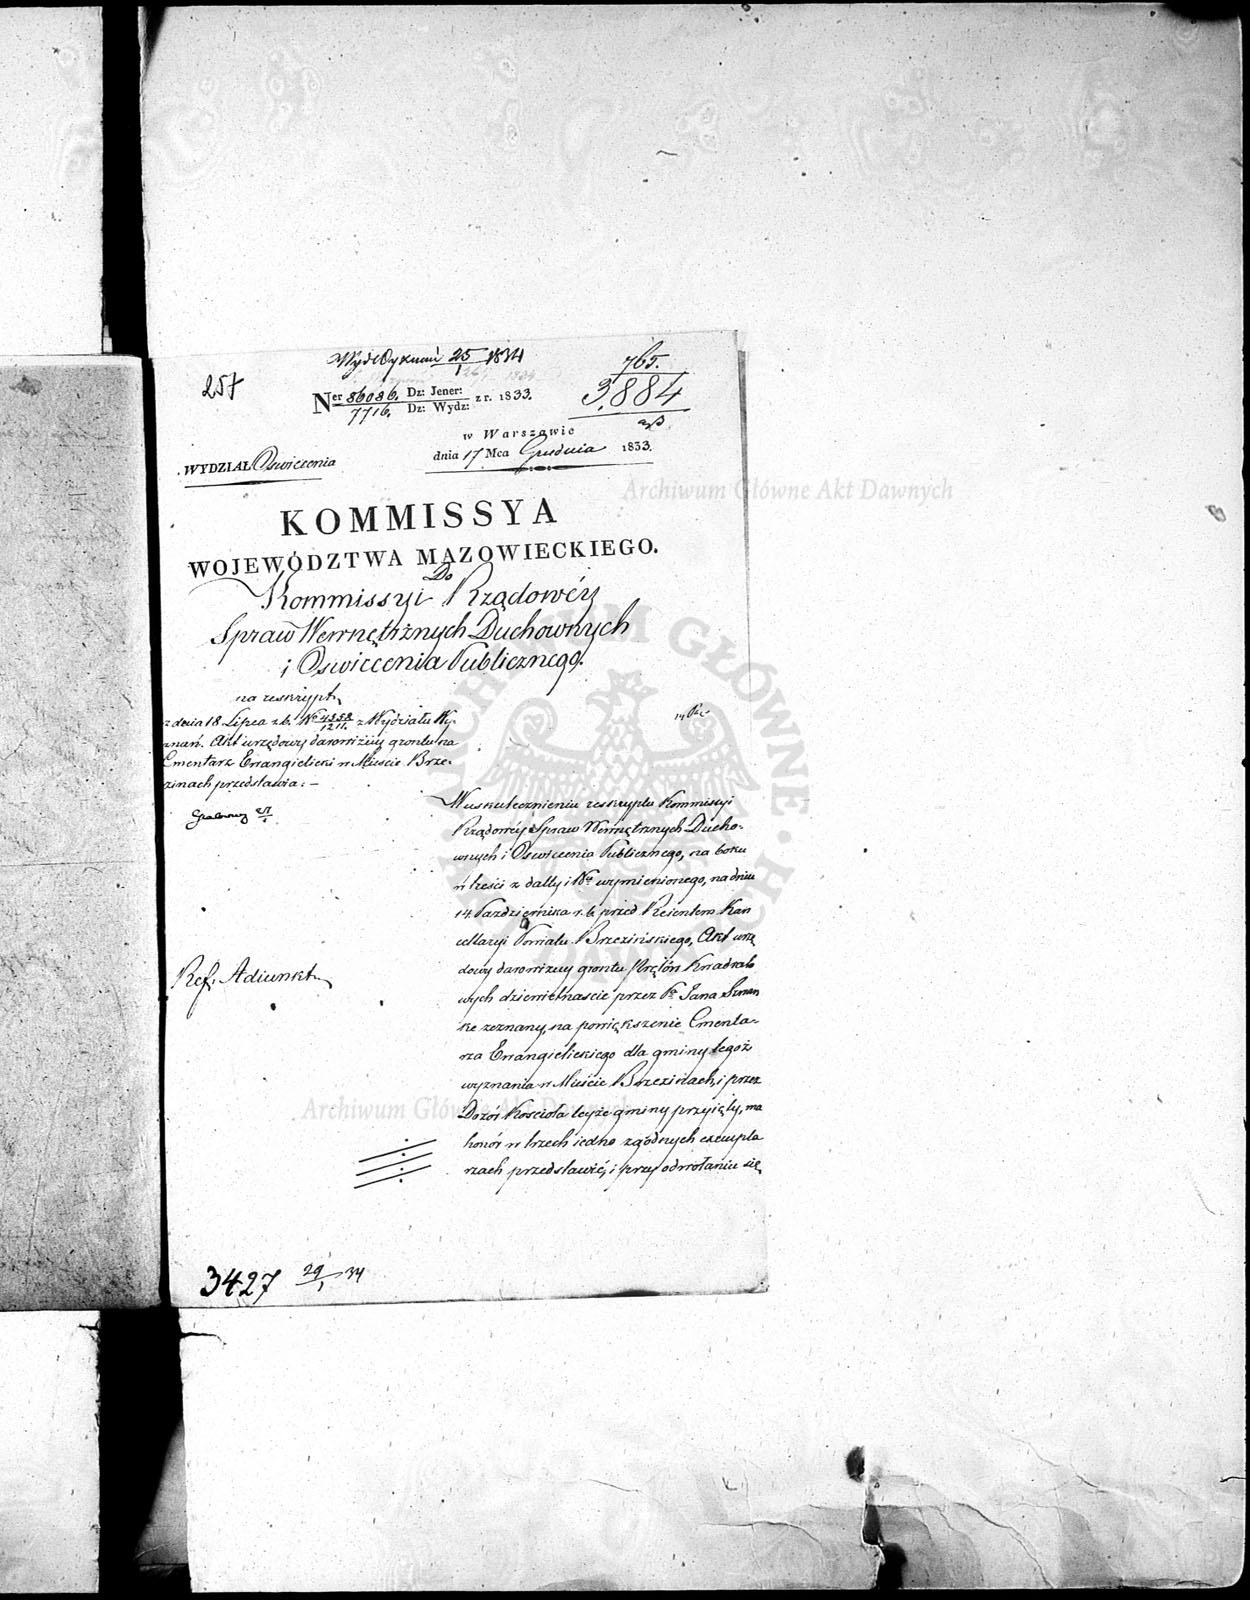 Wydł Wyznań 25/1 1834
257
765.
3,884
Ner 86086. Dz: Jener: z r. 1833.
7716. Dz: Wydz:
w Warszawie
dnia 17 Mca Grudnia 1833.
WYDZIAŁ Oswiecenia
Archiwum Główne Akt Dawnych
KOMMISSYA
WOJEWÓDZTWA MAZOWIECKIEGO.
Do
Kommissyi Rządowéy
Spraw Wewnętrznych Duchownych
i Oswiecenia Publicznego.
na reskrypt
z dnia 18 Lipca r.b. No 4558/1211. z Wydziału Wy-
znań. Akt urzędowy darowizny gruntu na
Cmentarz Ewangielicki w Mieście Brze-
zinach przedstawia: —
W uskutecznieniu reskryptu Kommissyi
Rządowéy Spraw Wewnętrznych Ducho-
wnych i Oswiecenia Publicznego, na boku
w treści z datty i No wymienionego, na dniu
14 Października r. b. przed Rejentem Kan
cellaryi Powiatu Brzezińskiego, Akt urzę
dowy darowizny gruntu Prętów Kwadrato
wych dziewietnascie przez Po Jana
zeznany, na powiększenie Cmenta-
rza Ewangielickiego dla gminy tegoż
wyznania w Mieście Brzezinach, i przez
Dozór Kościoła teyże gminy przyięty, ma
honór w trzech iedno zgodnych exempla
rzach przedstawić, i przy odwołaniu się
Ref. Adiunkt
Archiwum Główne Akt Dawnych
3427 29/1 34
ARCHIWUM GŁÓWNE AKT DAWNYCH